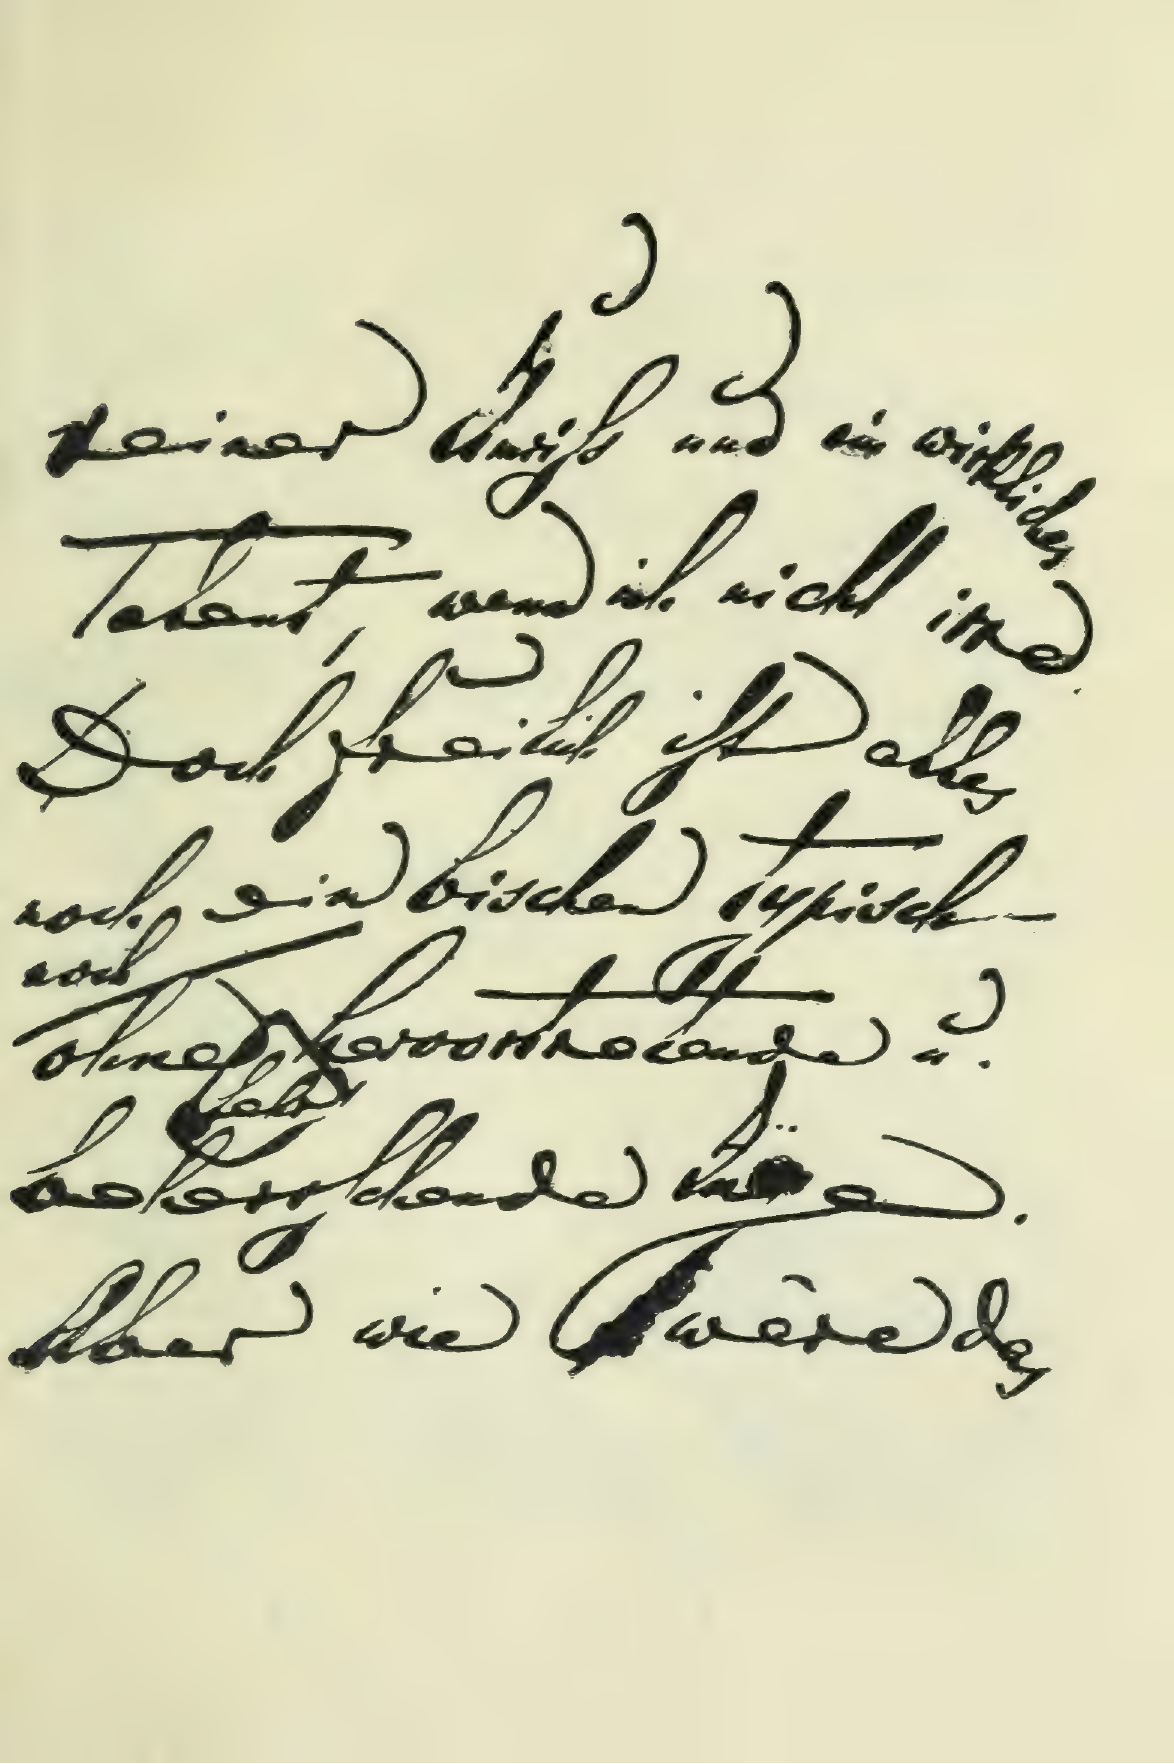 reiner Umriß und ein wirkliches
Talent, wenn ich nicht irre
Doch freilich ist alles
noch ein bischen typisch —
noch
ohne hervortretende u.
beherrschende
Aber wie wäre das